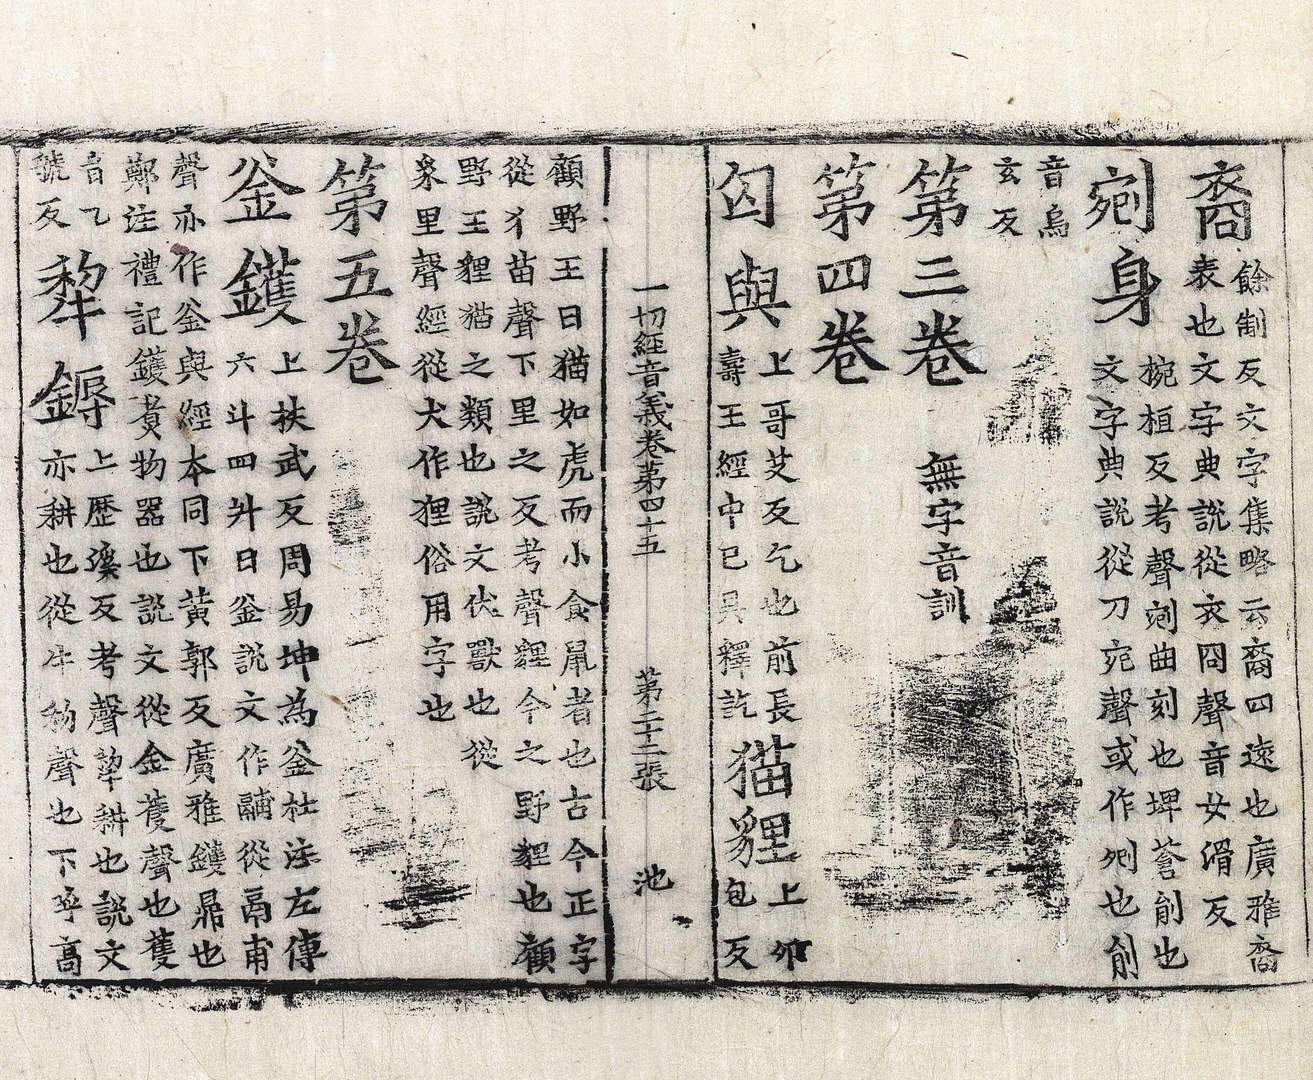 裔
餘制反文字集略云裔四遠也廣雅裔
表也文字典說從衣冏聲音女滑反
剜身
椀桓反考聲剜曲刻也埤蒼削也
文字典說從刀宛聲或作也削
音烏
玄反
第三卷 無字音訓
第四卷
匃與
上哥艾反乞也前長
壽王經中已具釋訖
猫貍
上卯
包反
一切經音義卷第四十五 第二十二張 池
顧野王曰猫如虎而小食鼠者也古今正字
從犭苗聲下里之反考聲貍今之野貍也顧
野王貍猫之類也說文伏獸也從
豸里聲經從犬作狸俗用字也
第五卷
釜鑊
上扶武反周易坤為釜杜注左傳
六斗四升曰釜說文作鬴從鬲甫
聲亦作釜與經本同下黃郭反廣雅鑊鼎也
鄭注禮記鑊煑物器也說文從金蒦聲也蒦
音乙
號反
犂鎒
上歷溪反考聲犂耕也說文
亦耕也從牛聲也下乎高